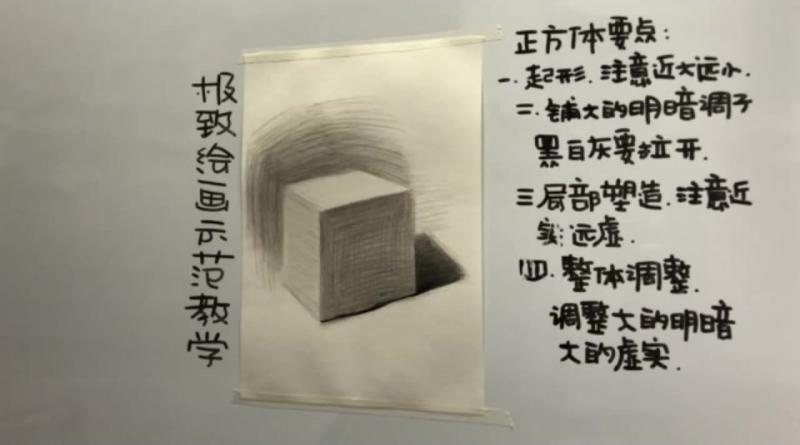 极致绘画示范教学
正方体要点:
一.起形.注意近大远小.
二.铺大的明暗调子
黑白灰要拉开.
三局部塑造.注意近
实远虚.
四.整体调整.
调整大的明暗
大的虚实.